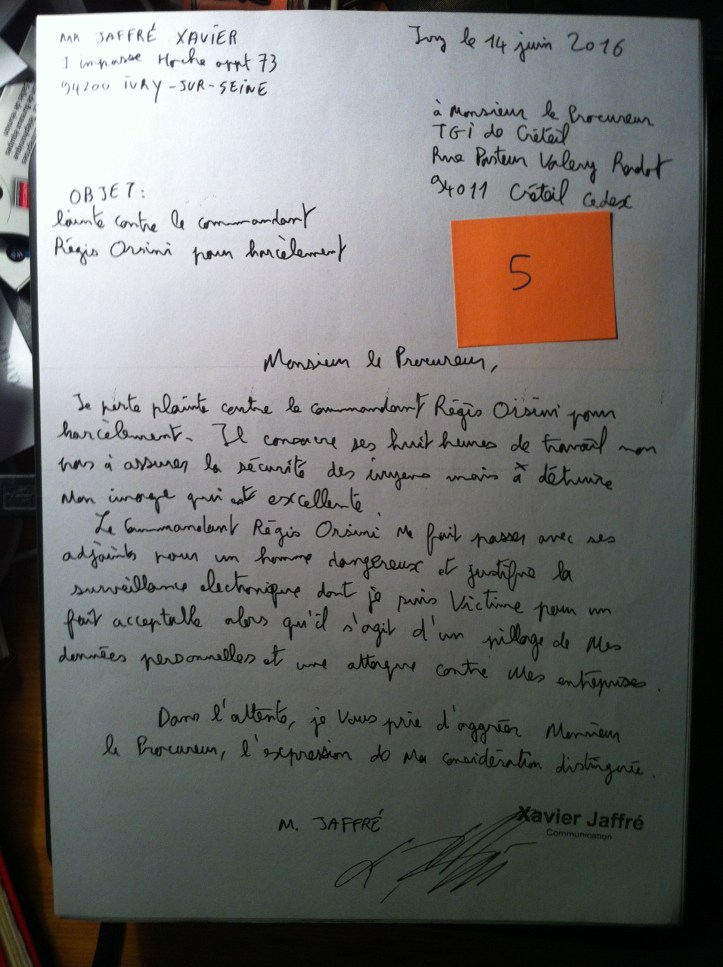 MR JAFFRÉ XAVIER
1 impasse Hoche appt 73
94200 IVRY-SUR-SEINE
Ivry le 14 juin 2016
à Monsieur le Procureur
TGI de Créteil
Rue Pasteur Valery Radot
94011 Créteil cedex
OBJET:
Plainte contre le commandant
Régis Orsini pour harcèlement
5
Monsieur le Procureur,
Je porte plainte contre le commandant Régis Orsini pour
harcèlement. Il consacre ses huit heures de travail non
pas à assurer la sécurité des citoyens mais à détruire
mon image qui est excellente.
Le Commandant Régis Orsini me fait passer avec ses
adjoints pour un homme dangereux et justifie la
surveillance electronique dont je suis Victime pour un
fait acceptable alors qu'il s'agit d'un pillage de mes
données personnelles et une attaque contre mes entreprises.
Dans l'attente, je vous prie d'aggréer Monsieur
le Procureur, l'expression de ma considération distinguée.
M. JAFFRÉ
Xavier Jaffré
Communication